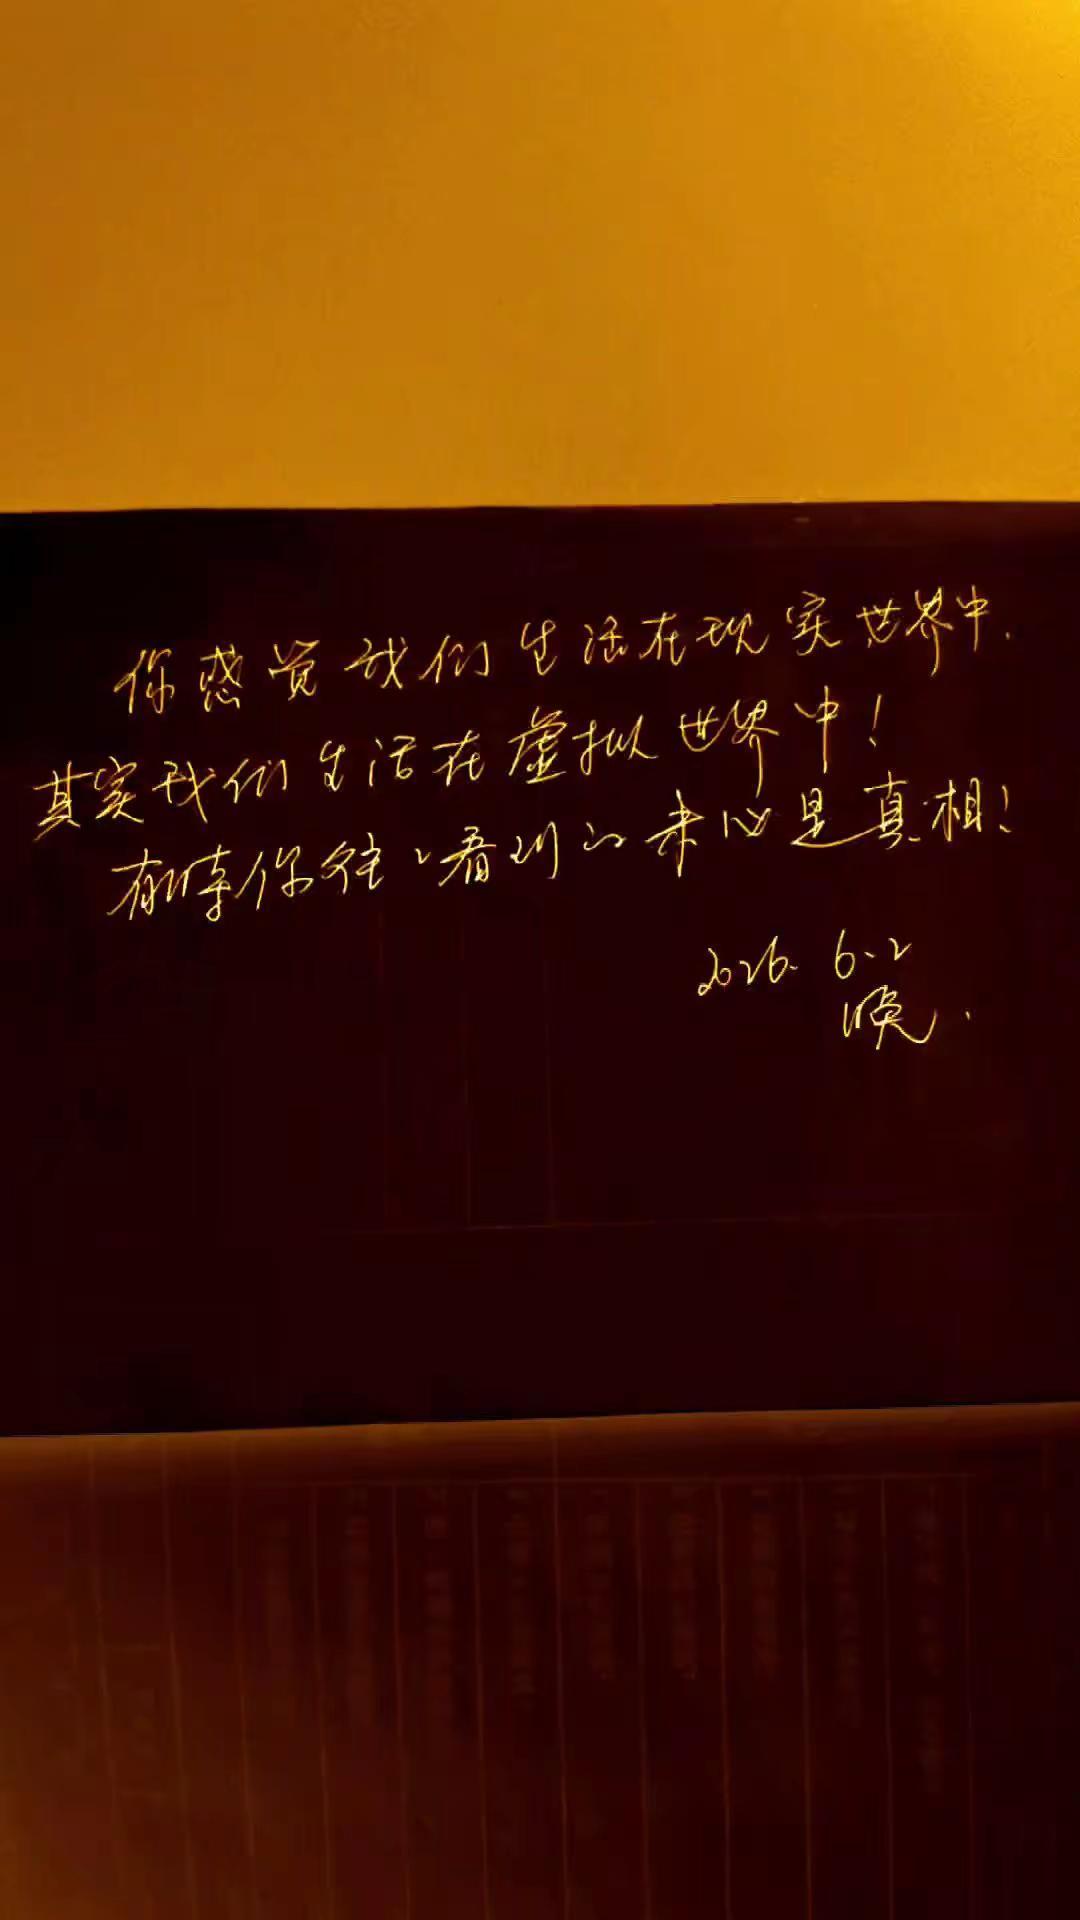 你感觉我们生活在现实世界中.
其实我们生活在虚拟世界中!
有时你往往看到的未必是真相!
2026. 6.2
晚.